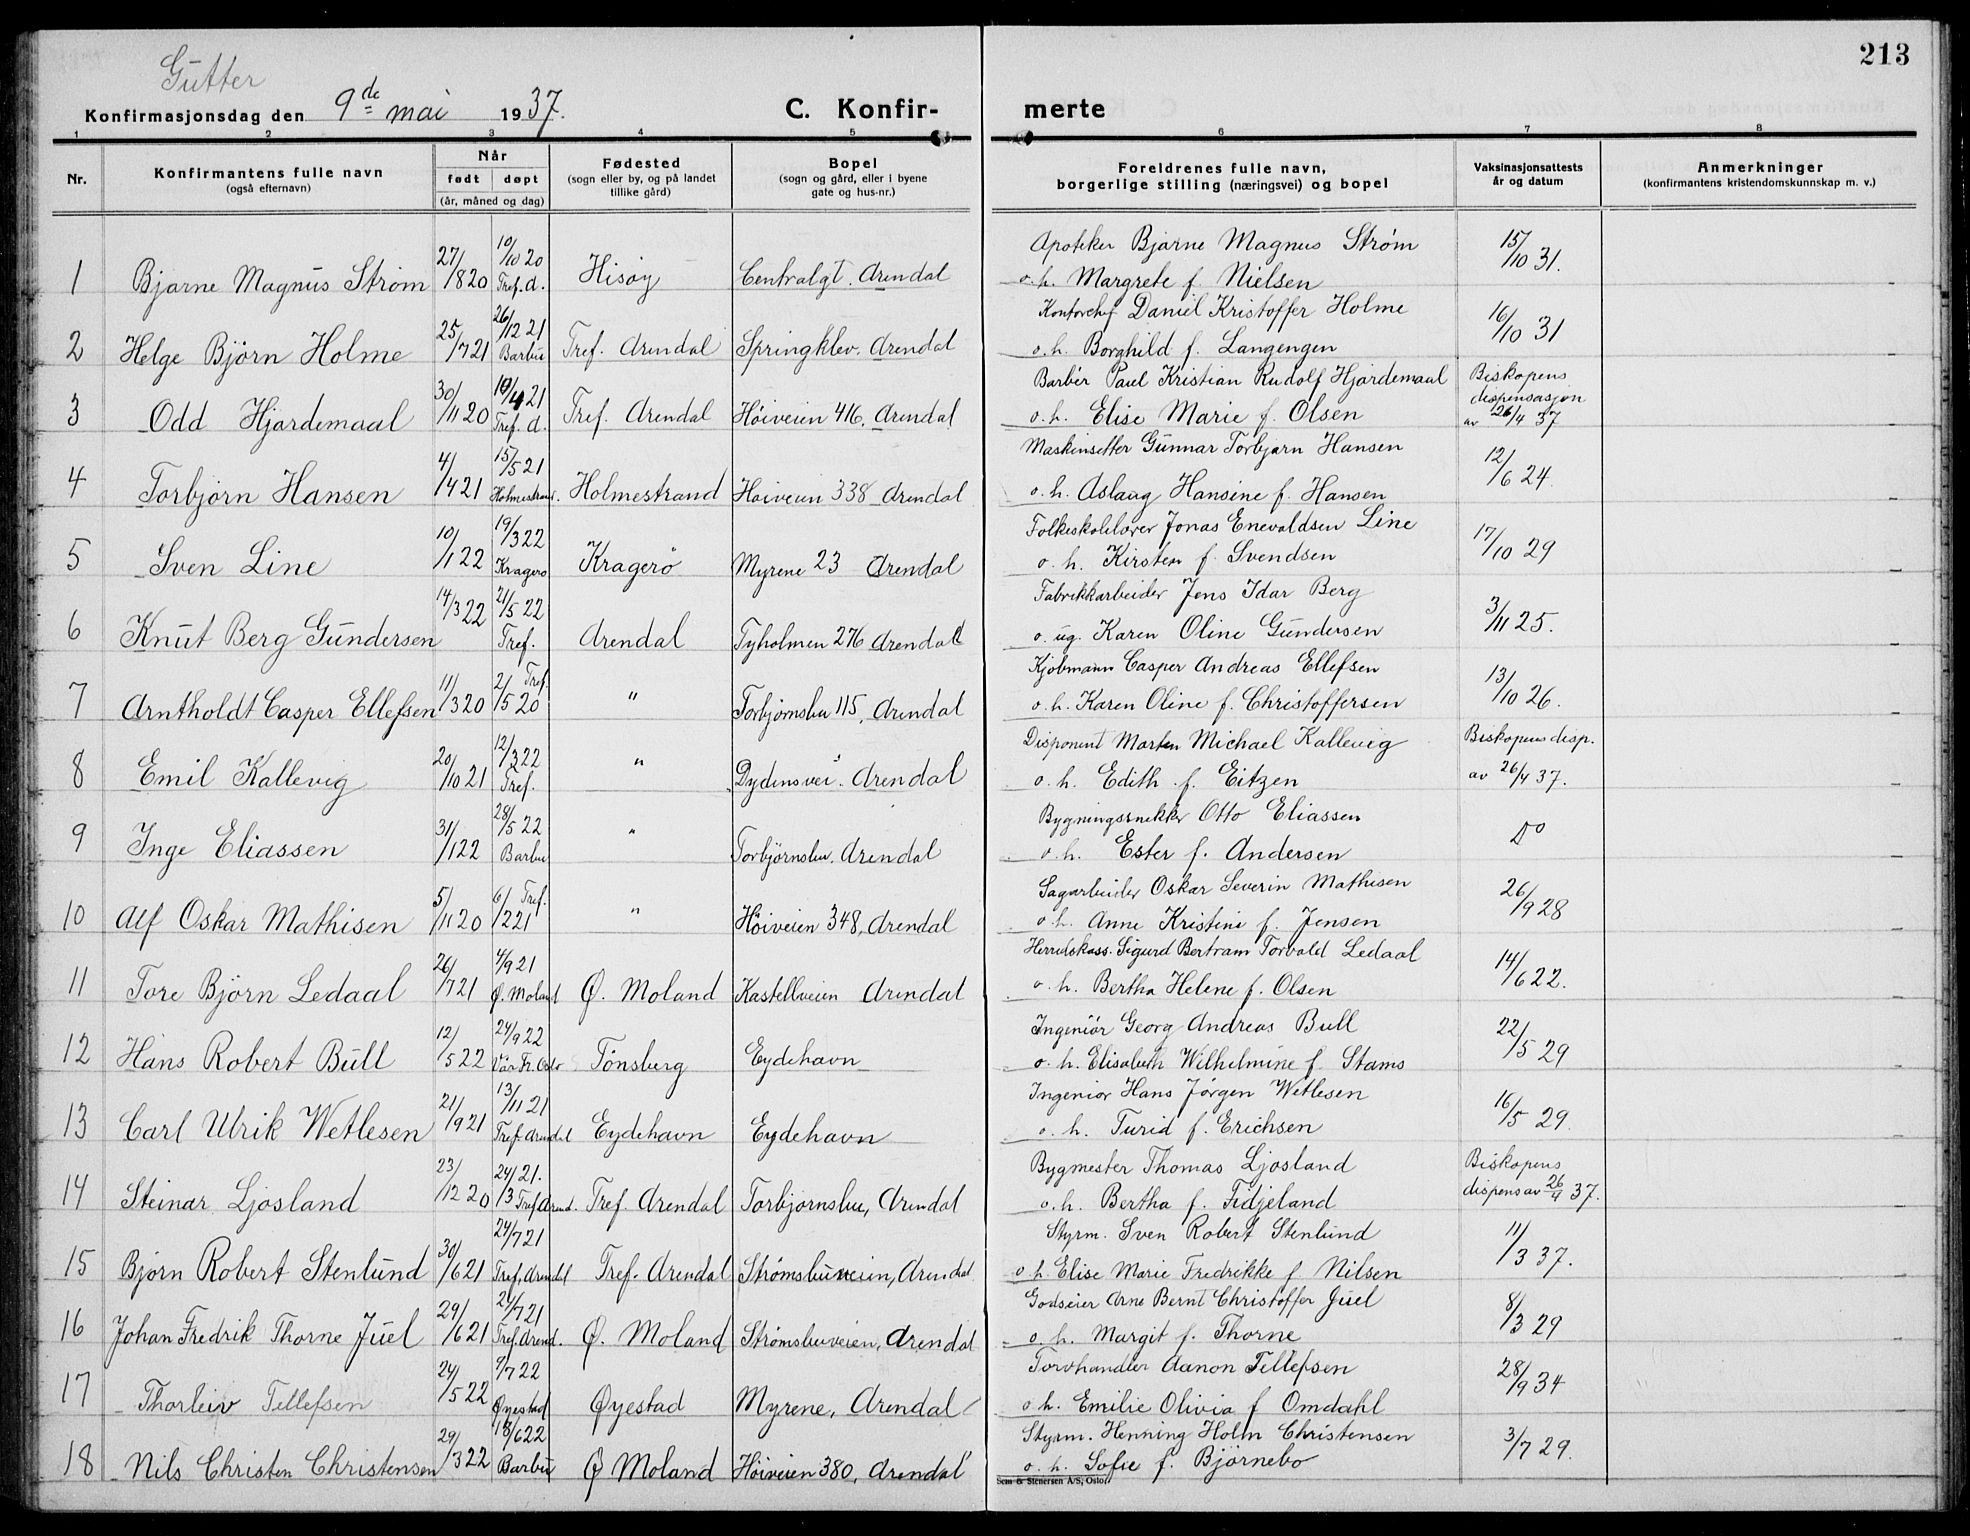 213
Gutter
Konfirmasjonsdag den 9de mai 1937.
C. Konfir-
merte
1 2 3 4 5 6 7 8
Nr.
Konfirmantens fulle navn
(også efternavn)
Når
født døpt
(år, måned og dag)
Fødested
(sogn eller by, og på landet
tillike gård)
Bopel
(sogn og gård, eller i byene
gate og hus-nr.)
Foreldrenes fulle navn,
borgerlige stilling (næringsvei) og bopel
Vaksinasjonsattests
år og datum
Anmerkninger
(konfirmantens kristendomskunnskap m. v.)
1 Bjarne Magnus Strøm 27/8 20 10/10 20 Tref. d. Hisøy Centralgt. Arendal
Apoteker Bjarne Magnus Strøm
o. h. Margrete f. Nielsen
15/10 31.
2 Helge Björn Holme 25/7 21 26/12 21 Barbu Tref. Arendal Springklev. Arendal
Kontorchef Daniel Kristoffer Holme
o. h. Borghild f. Langengen
16/10 31
3 Odd Hjardemaal 30/11 20 10/4 21 Tref. d. Tref. Arendal Höiveien 416. Arendal
Barbér Paul Kristian Rudolf Hjardemaal
o. h. Elise Marie f. Olsen
Biskopens
dispensasjon
av 26/4 37
4 Torbjörn Hansen 4/4 21 15/5 21 Holmestrand. Holmestrand Höiveien 338 Arendal
Maskinsetter Gunnar Torbjørn Hansen
o. h. Aslaug Hansine f. Hansen
12/6 24.
5 Sven Line 10/1 22 19/3 22 Kragerø Kragerö Myrene 23 Arendal
Folkeskolelærer Jonas Enevaldsen Line
o. h. Kirsten f. Svendsen
17/10 29
6 Knut Berg Gundersen 14/3 22 21/5 22 Tref. Arendal Tyholmen 276 Arendal
Fabrikkarbeider Jens Idar Berg
o. ug. Karen Oline Gundersen
3/11 25.
7 Arntholdt Casper Ellefsen 11/3 20 2/5 20 Tref. " Torbjørnsbu 115, Arendal
Kjøbmann Casper Andreas Ellefsen
o. h. Karen Oline f. Christoffersen
13/10 26.
8 Emil Kallevig 20/10 21 12/3 22 Tref. " Dydensvei. Arendal
Disponent Morten Michael Kallevig
o. h. Edith f. Eitzen
Biskopens disp.
av 26/4 37.
9 Inge Eliassen 31/1 22 28/5 22 Barbu " Torbjørnsbu. Arendal
Bygningssnekker Otto Eliassen
o. h. Ester f. Andersen
Do
10 Alf Oskar Mathisen 5/11 20 6/2 21 Tref. " Höiveien 348, Arendal
Sagarbeider Oskar Severin Mathisen
o. h. Anne Kristine f. Jensen
26/9 28
11 Tore Björn Ledaal 26/7 21 4/9 21 Ø. Moland Ø. Moland Kastellveien Arendal
Herredskass. Sigurd Bertram Torvald Ledaal
o. h. Bertha Helene f. Olsen
14/6 22.
12 Hans Robert Bull 12/5 22 24/9 22 Vår Fr. Oslo Tönsberg Eydehavn
Ingeniör Georg Andreas Bull
o. h. Elisabeth Wilhelmine f. Stams
22/5 29
13 Carl Ulrik Wetlesen 21/9 21 13/11 21 Tref. Arendal Eydehavn Eydehavn
Ingeniør Hans Jørgen Wetlesen
o. h. Turid f. Erichsen
16/5 29.
14 Steinar Ljosland 23/12 20 24/3 21. Tref Arend. Tref. Arendal Torbjørnsbu, Arendal
Bygmester Thomas Ljosland
o. h. Bertha f. Fidjeland
Biskopens
dispens av 26/4 37.
15 Björn Robert Stenlund 30/6 21 24/7 21 Tref. Arendl Tref. Arendal Strømsbuveien, Arendal
Styrm. Sven Robert Stenlund
o. h. Elise Marie Fredrikke f Nilsen
11/3 37.
16 Johan Fredrik Thorne Juel 29/6 21 24/7 21 Tref. Arend. Ø. Moland Strømsbuveien, Arendal
Godseier Arne Bernt Christoffer Juel
o. h. Margit f. Thorne
8/3 29
17 Thorleiv Tellefsen 24/5 22 9/7 22 Øyestad Øyestad Myrene, Arendal
Torvhandler Aanon Tellefsen
o. h. Emilie Olivia f Omdahl
28/9 34
18 Nils Christen Christensen 29/3 22 18/6 22 Barbu Ø Moland Höiveien 380, Arendal
Styrm. Henning Holm Christensen
o. h. Sofie f. Björnebo
3/7 29.
Sem & Stenersen A/S, Oslo.